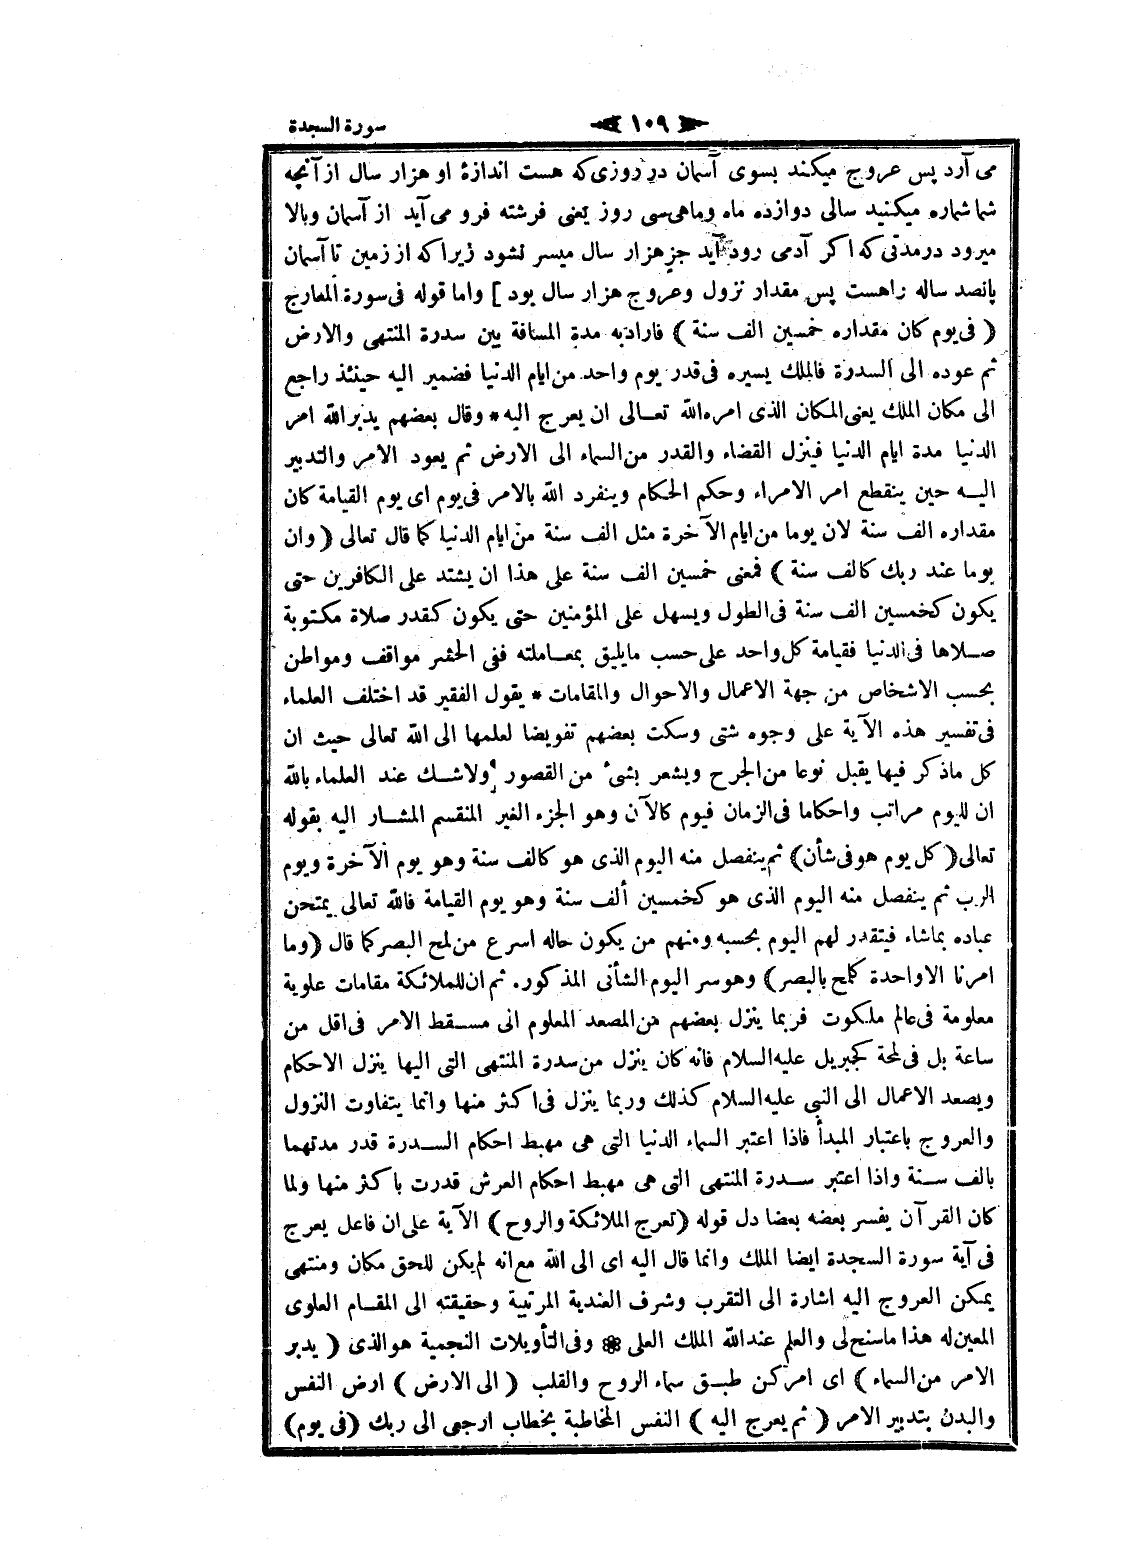 سورة السجدة
١٠٩
می آرد پس عروج میکند بسوی آسمان در روزی که هست اندازهٔ او هزار سال از آنچه
شما شماره میکنید سالی دوازده ماه وماهی سی روز یعنی فرشته فرو می آید از آسمان وبالا
میرود درمدتی که اکر آدمی رود آید جز هزار سال میسر نشود زیرا که از زمین تا آسمان
پانصد ساله راهست پس مقدار نزول وعروج هزار سال بود ] واما قوله فى سورة المعارج
( فى يوم كان مقداره خمسين الف سنة ) فاراد به مدة المسافة بين سدرة المنتهى والارض
ثم عوده الى السدرة فالملك يسيره فى قدر يوم واحد من ايام الدنيا فضمير اليه حينئذ راجع
الى مكان الملك يعنى المكان الذى امره الله تعـالى ان يعرج اليه * وقال بعضهم يدبر الله امر
الدنيا مدة ايام الدنيا فينزل القضاء والقدر من السماء الى الارض ثم يعود الامر والتدبير
اليـه حين ينقطع امر الامراء وحكم الحكام وينفرد الله بالامر فى يوم اى يوم القيامة كان
مقداره الف سنة لان يوما من ايام الآخرة مثل الف سنة من ايام الدنيا كما قال تعالى ( وان
يوما عند ربك كالف سنة ) فمعنى خمسين الف سنة على هذا ان يشتد على الكافرين حتى
يكون كخمسين الف سنة فى الطول ويسهل على المؤمنين حتى يكون كقدر صلاة مكتوبة
صـلاها فى الدنيا فقيامة كل واحد على حسب مايليق بمعـاملته ففى الحشر مواقف ومواطن
بحسب الاشخاص من جهة الاعمال والاحوال والمقامات * يقول الفقير قد اختلف العلماء
فى تفسير هذه الآية على وجوه شتى وسكت بعضهم تفويضا لعلمها الى الله تعالى حيث ان
كل ماذكر فيها يقبل نوعا من الجرح ويشعر بشىء من القصور ولاشـك عند العلماء بالله
ان لليوم مراتب واحكاما فى الزمان فيوم كالآن وهو الجزء الغير المنقسم المشـار اليه بقوله
تعالى ( كل يوم هو فى شأن ) ثم ينفصل منه اليوم الذى هو كالف سنة وهو يوم الآخرة ويوم
الرب ثم ينفصل منه اليوم الذى هو كخمسين ألف سنة وهو يوم القيامة فالله تعالى يمتحن
عباده بماشاء فيتقدر لهم اليوم بحسبه ومنهم من يكون حاله اسرع من لمح البصر كما قال ( وما
امرنا الاواحدة كلمح بالبصر ) وهو سر اليوم الشأنى المذكور. ثم ان للملائكة مقامات علوية
معلومة فى عالم ملكوت فربما ينزل بعضهم من المصعد المعلوم الى مسـقط الامر فى اقل من
ساعة بل فى لمحة كجبريل عليه السلام فانه كان ينزل من سدرة المنتهى التى اليها ينزل الاحكام
ويصعد الاعمال الى النبى عليه السلام كذلك وربما ينزل فى اكثر منها وانما يتفاوت النزول
والعروج باعتبار المبدأ فاذا اعتبر السماء الدنيا التى هى مهبط احكام السـدرة قدر مدتهما
بالف سـنة واذا اعتبر سـدرة المنتهى التى هى مهبط احكام العرش قدرت باكثر منها ولما
كان القرآن يفسر بعضه بعضا دل قوله ( تعرج الملائكة والروح ) الآية على ان فاعل يعرج
فى آية سورة السجدة ايضا الملك وانما قال اليه اى الى الله مع انه لم يكن للحق مكان ومنتهى
يمكن العروج اليه اشارة الى التقرب وشرف العندية المرتبية وحقيقته الى المقـام العلوى
المعين له هذا ماسنح لى والعلم عند الله الملك العلى ❁ وفى التأويلات النجمية هو الذى ( يدبر
الامر من السماء ) اى امر كن طبـق سماء الروح والقلب ( الى الارض ) ارض النفس
والبدن بتدبير الامر ( ثم يعرج اليه ) النفس المخاطبة بخطاب ارجعى الى ربك ( فى يوم )